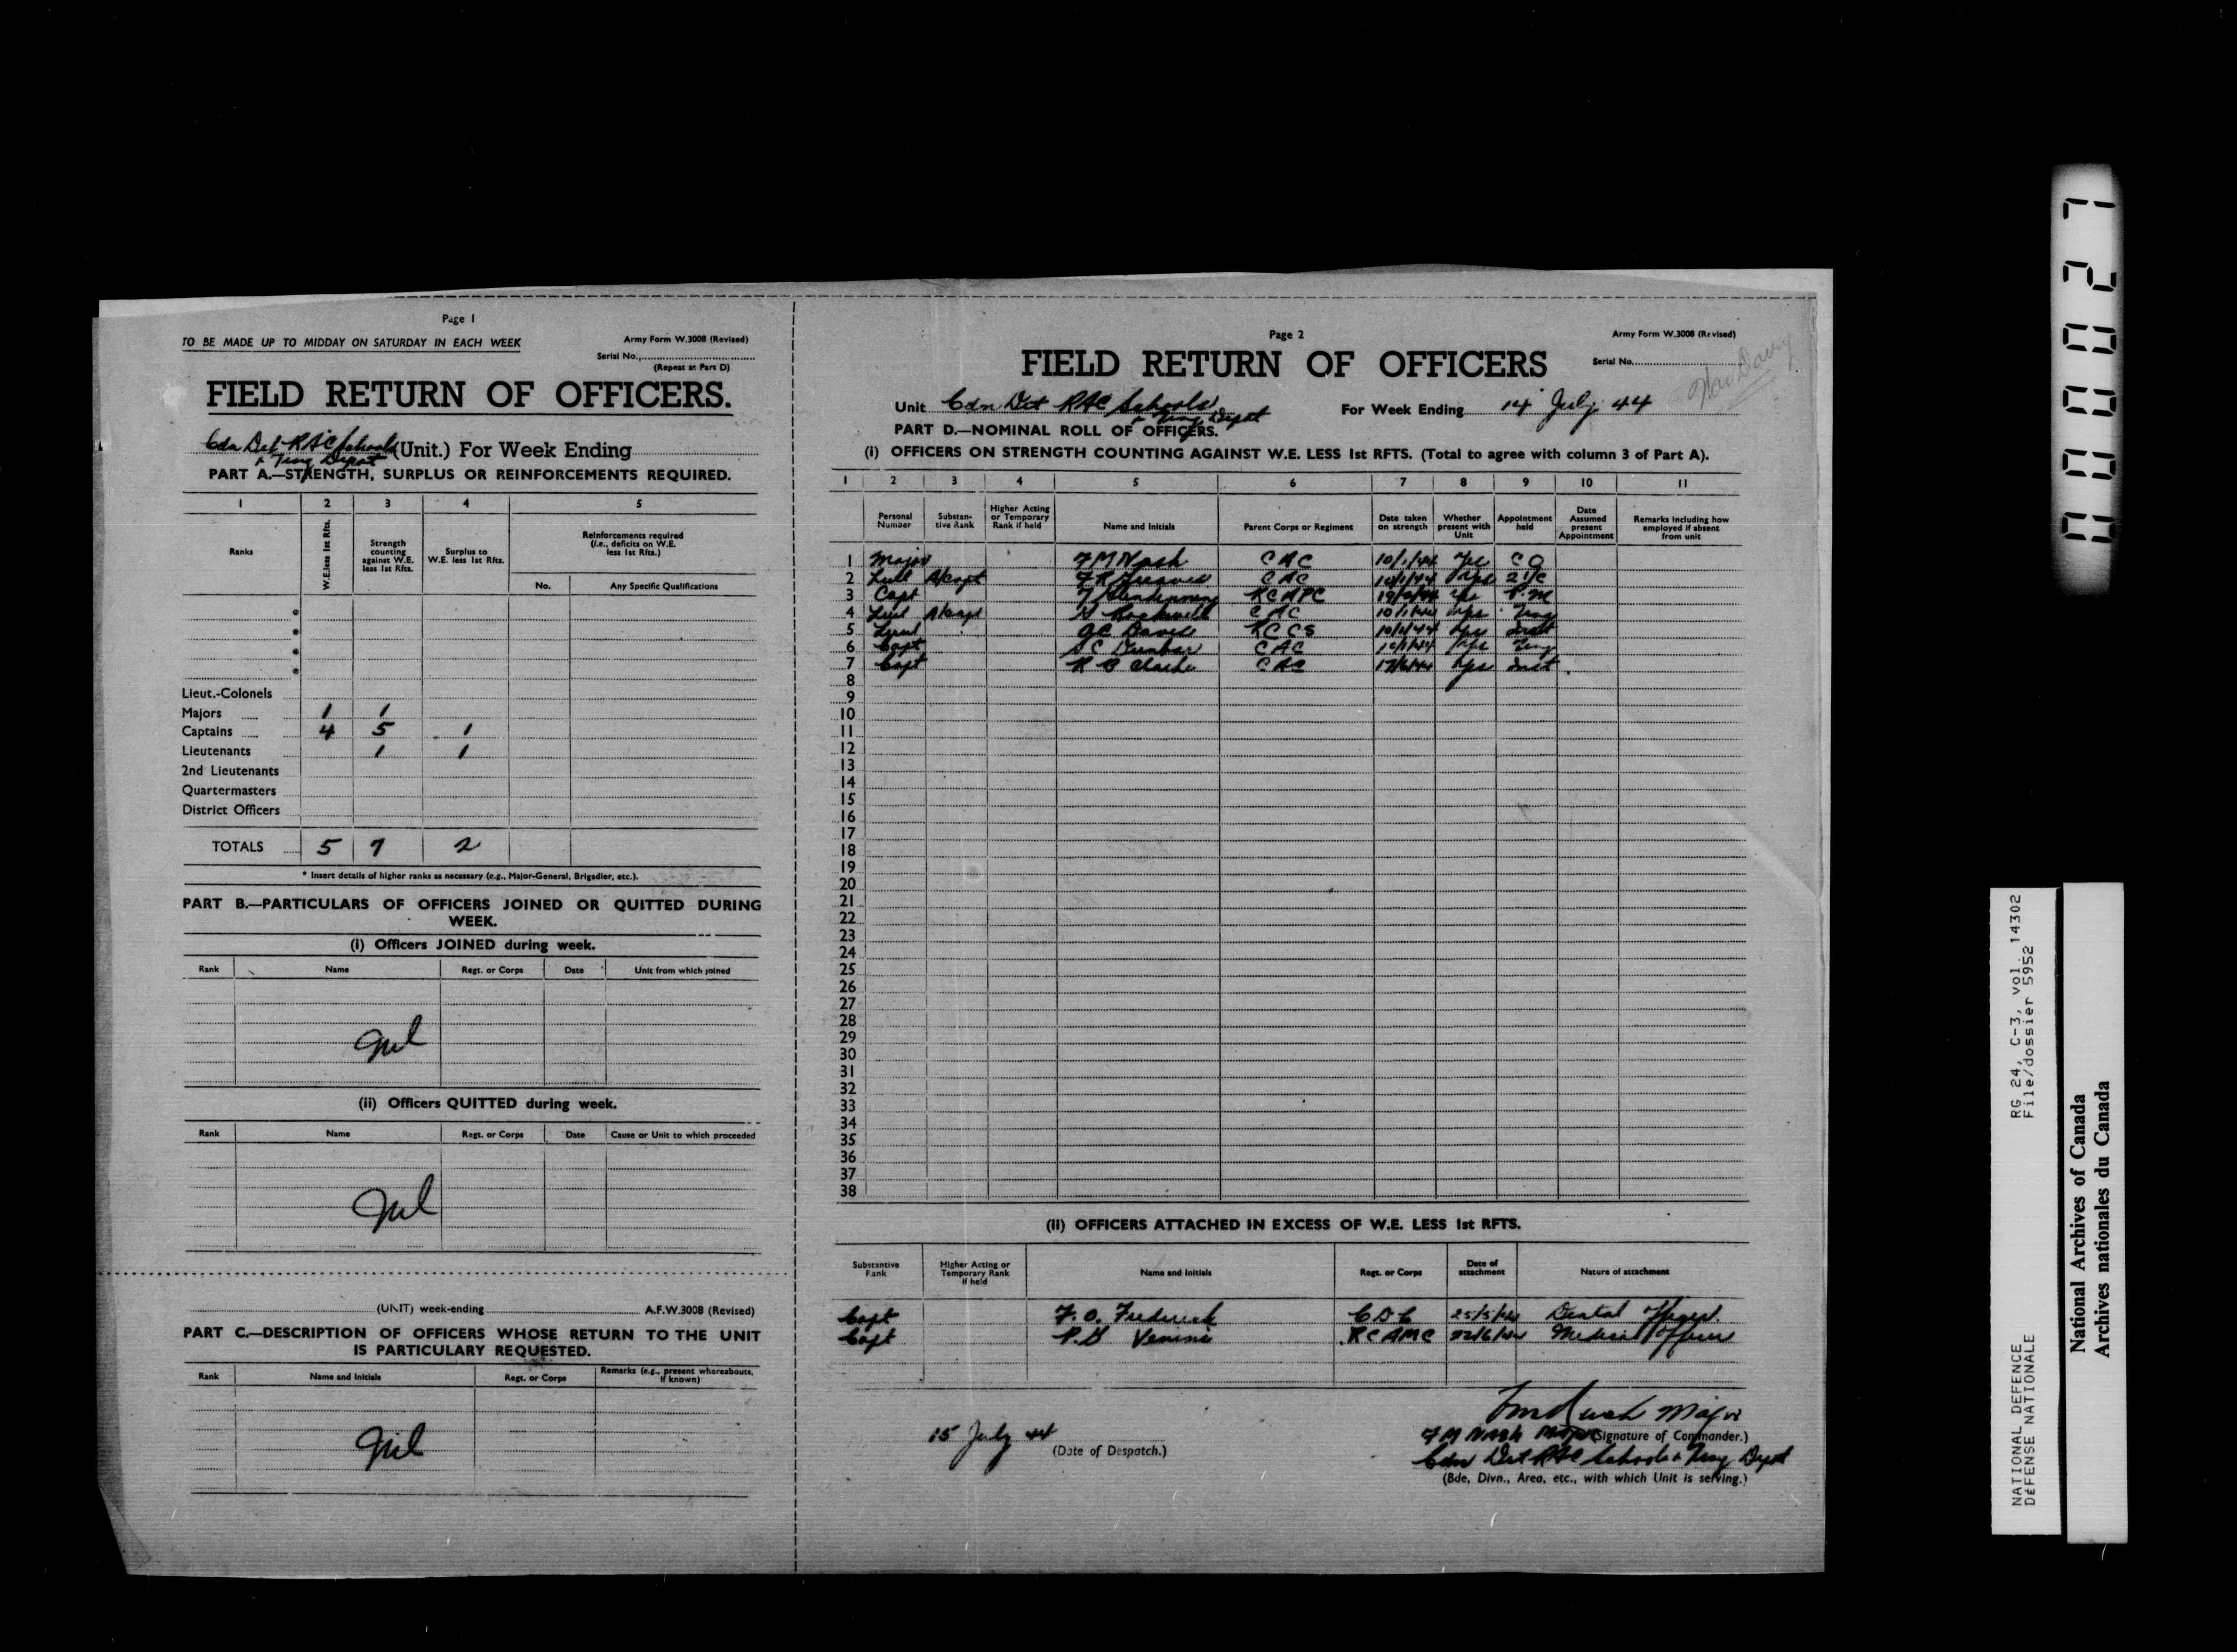 Page 1
TO BE MADE UP TO MIDDAY ON SATURDAY IN EACH WEEK
Army Form W.3008 (Revised)
Serial No.
(Repeat at Part D)
FIELD RETURN OF OFFICERS.
Cdn Det RAC Schools (Unit.) For Week Ending
+ Trng Depot
PART A.—STRENGTH, SURPLUS OR REINFORCEMENTS REQUIRED.
1 2 3 4 5
Ranks
W.E. less 1st Rfts.
Strength counting against W.E. less 1st Rfts.
Surplus to W.E. less 1st Rfts.
Reinforcements required (i.e., deficits on W.E. less 1st Rfts.)
No. Any Specific Qualifications
*
*
*
*
Lieut.-Colonels
Majors 1 1
Captains 4 5 1
Lieutenants 1 1
2nd Lieutenants
Quartermasters
District Officers
TOTALS 5 7 2
* Insert details of higher ranks as necessary (e.g., Major-General, Brigadier, etc.).
PART B.—PARTICULARS OF OFFICERS JOINED OR QUITTED DURING
WEEK.
(i) Officers JOINED during week.
Rank Name Regt. or Corps Date Unit from which joined
Nil
(ii) Officers QUITTED during week.
Rank Name Regt. or Corps Date Cause or Unit to which proceeded
Nil
(UNIT) week-ending A.F.W.3008 (Revised)
PART C.—DESCRIPTION OF OFFICERS WHOSE RETURN TO THE UNIT
IS PARTICULARY REQUESTED.
Rank Name and Initials Regt. or Corps Remarks (e.g., present whereabouts, if known)
Nil
Page 2
Army Form W.3008 (Revised)
FIELD RETURN OF OFFICERS
Serial No.
Unit Cdn Det RAC Schools + Trng Depot For Week Ending 14 July 44
PART D.—NOMINAL ROLL OF OFFICERS.
(i) OFFICERS ON STRENGTH COUNTING AGAINST W.E. LESS 1st RFTS. (Total to agree with column 3 of Part A).
1 2 3 4 5 6 7 8 9 10 11
Personal Number
Substantive Rank
Higher Acting or Temporary Rank if held
Name and Initials
Parent Corps or Regiment
Date taken on strength
Whether present with Unit
Appointment held
Date Assumed present Appointment
Remarks including how employed if absent from unit
1 Major F M Nash CAC 10/1/44 Yes CO
2 A/Capt CAC 10/1/44 Yes 2 i/c
3 Capt RCAPC Yes P.M
4 A/Capt CAC 10/1/44 Yes Trng
5 RCCS 10/1/44 Yes Inst
6 Capt S C Dunbar CAC 10/1/44 Yes Trng
7 Capt R C Clarke CAC 17/6/44 Yes Inst
8
9
10
11
12
13
14
15
16
17
18
19
20
21
22
23
24
25
26
27
28
29
30
31
32
33
34
35
36
37
38
(ii) OFFICERS ATTACHED IN EXCESS OF W.E. LESS 1st RFTS.
Substantive Rank
Higher Acting or Temporary Rank if held
Name and Initials
Regt. or Corps
Date of attachment
Nature of attachment
Capt F. O. Frederick CDC 25/5/44 Dental Officer
Capt RCAMC 22/6/44 Medical Officer
Major
15 July 44
(Date of Despatch.)
F M Nash Major (Signature of Commander.)
Cdn Det RAC Schools + Trng Depot
(Bde, Divn., Area, etc., with which Unit is serving.)
000027
RG 24, C-3, vol. 14302
File/dossier 5952
NATIONAL DEFENCE
DÉFENSE NATIONALE
National Archives of Canada
Archives nationales du Canada